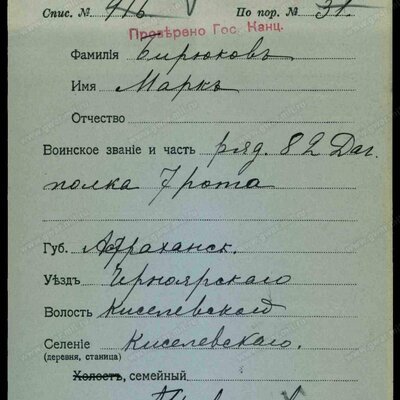 Спис. № 916 По пор. № 31.
Провѣрено Гос. Канц.
Фамилія Бирюковъ
Имя Маркъ
Отчество
Воинское званіе и часть ряд. 82 Даг.
полка 7 рота
Губ. Астраханск.
Уѣздъ Черноярскаго
Волость Киселевской
Селеніе Киселевскаго.
(деревня, станица)
Холостъ, семейный